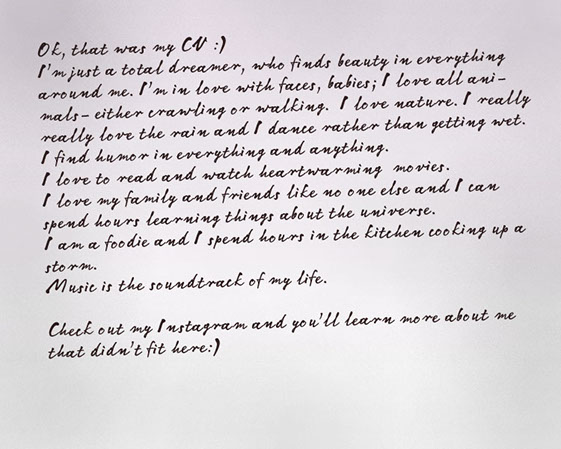 Ok, that was my CV :)
I'm just a total dreamer, who finds beauty in everything
around me. I'm in love with faces, babies; I love all ani-
mals- either crawling or walking. I love nature. I really
really love the rain and I dance rather than getting wet.
I find humor in everything and anything.
I love to read and watch heartwarming movies.
I love my family and friends like no one else and I can
spend hours learning things about the universe.
I am a foodie and I spend hours in the kitchen cooking up a
storm.
Music is the soundtrack of my life.
Check out my Instagram and you'll learn more about me
that didn't fit here:)